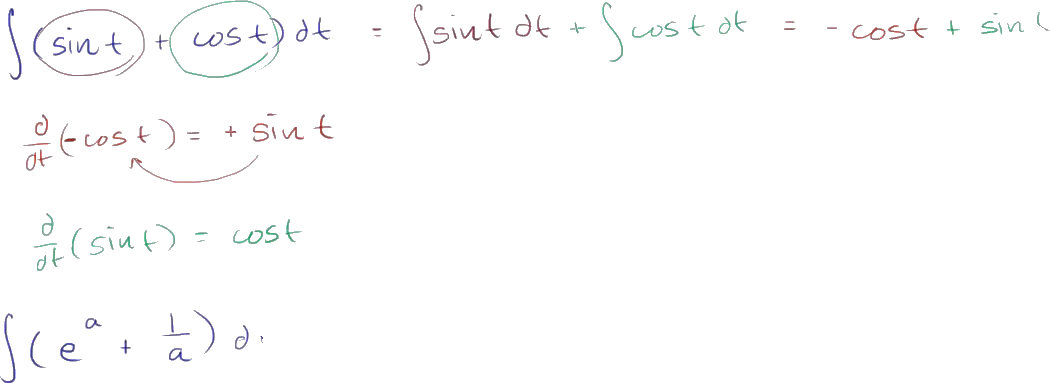 ∫(sin t + cos t) dt = ∫sin t dt + ∫cos t dt = - cos t + sin
d/dt (-cos t) = + sin t
d/dt (sin t) = cos t
∫(e^a + 1/a) d